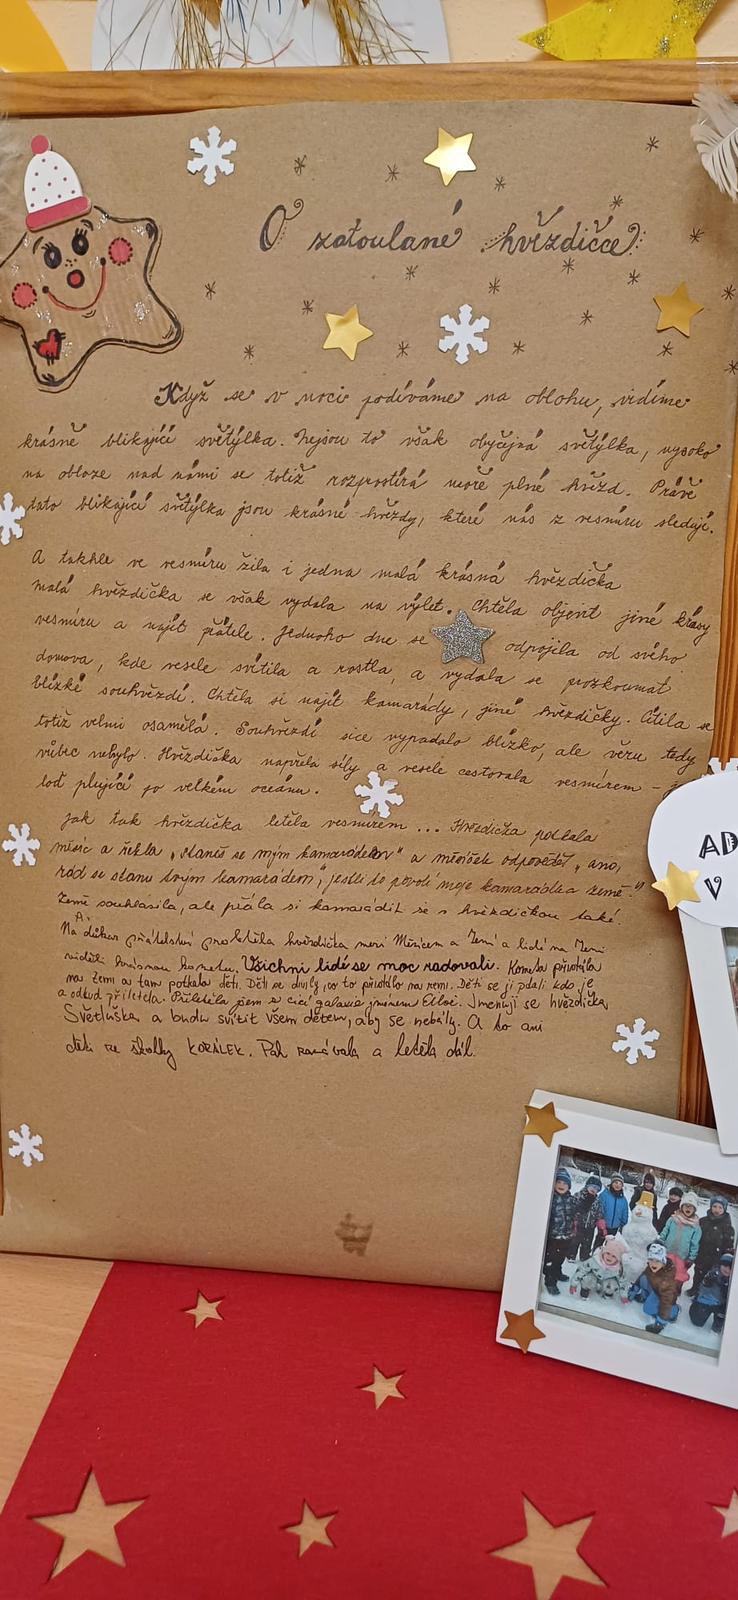 O zatoulané hvězdičce
Když se v noci podíváme na oblohu, vidíme
krásně blikající světýlka. Nejsou to však obyčejná světýlka, vysoko
na obloze nad námi se totiž rozprostírá moře plné hvězd. Právě
tato blikající světýlka jsou krásné hvězdy, které nás z vesmíru sledují.
A takhle ve vesmíru žila i jedna malá krásná hvězdička
malá hvězdička se však vydala na výlet. Chtěla objevit jiné krásy
vesmíru a najít přátele. Jednoho dne se odpojila od svého
domova, kde vesele svítila a rostla, a vydala se prozkoumat
blízké souhvězdí. Chtěla si najít kamarády, jiné hvězdičky. Cítila se
totiž velmi osamělá. Souhvězdí sice vypadalo blízko, ale věru tedy
vůbec nebylo. Hvězdička napřela síly a vesele cestovala vesmírem -
loď plující po velkém oceánu.
Jak tak hvězdička letěla vesmírem ... Hvězdička potkala
měsíc a řekla „staneš se mým kamarádem" a měsíček odpověděl „ano,
rád se stanu tvým kamarádem, jestli to povolí moje kamarádka země."
Země souhlasila, ale přála si kamarádit se s hvězdičkou také.
Na důkaz přátelství proletěla hvězdička mezi Měsícem a Zemí a lidé na Zemi
viděli krásnou kometu. Všichni lidé se moc radovali. Kometa přistála
na Zemi a tam potkala děti. Děti se divily co to přistálo na zemi. Děti se jí ptali kdo je
a odkud přiletěla. Přiletěla jsem z cizí galaxie jménem Jmenuji se hvězdička
Světluška a budu svítit všem dětem, aby se nebály. A to ani
děti ze školky KORÁLEK. Pak zamávala a letěla dál.
AD
V